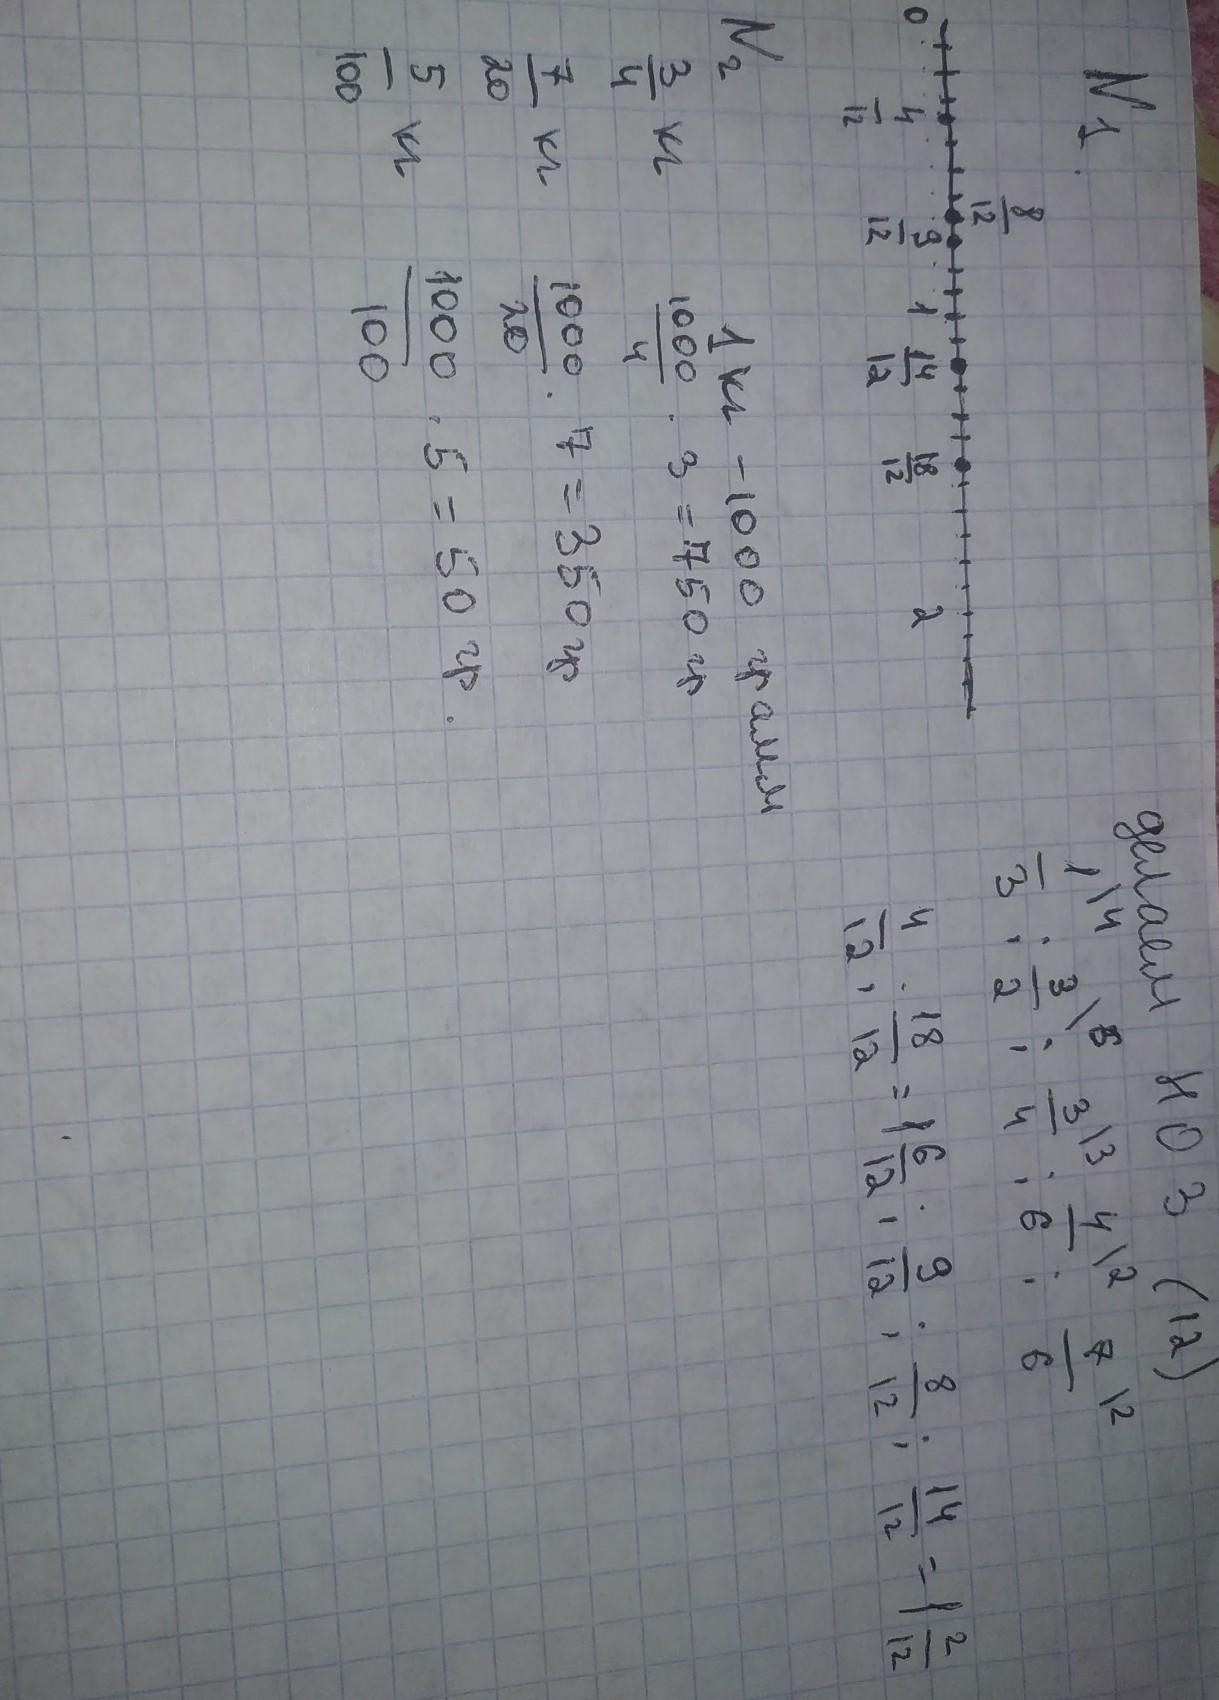 N1.
делаем НОЗ (12)
1/3 \4 ; 3/2 \6 ; 3/4 \3 ; 4/6 \2 ; 7/6 \2
8/12
0 4/12 9/12 1 14/12 18/12 2
4/12 ; 18/12 = 1 6/12 ; 9/12 ; 8/12 ; 14/12 = 1 2/12
N2
1 кг - 1000 грамм
3/4 кг 1000/4 · 3 = 750 гр
7/20 кг 1000/20 · 7 = 350 гр
5/100 кг 1000/100 · 5 = 50 гр.